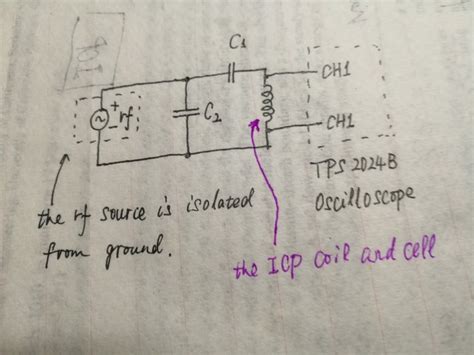 C1
CH1
+
rf
-
C2
CH1
TPS 2024B
Oscilloscope
the rf source is isolated
from ground.
the ICP coil and cell